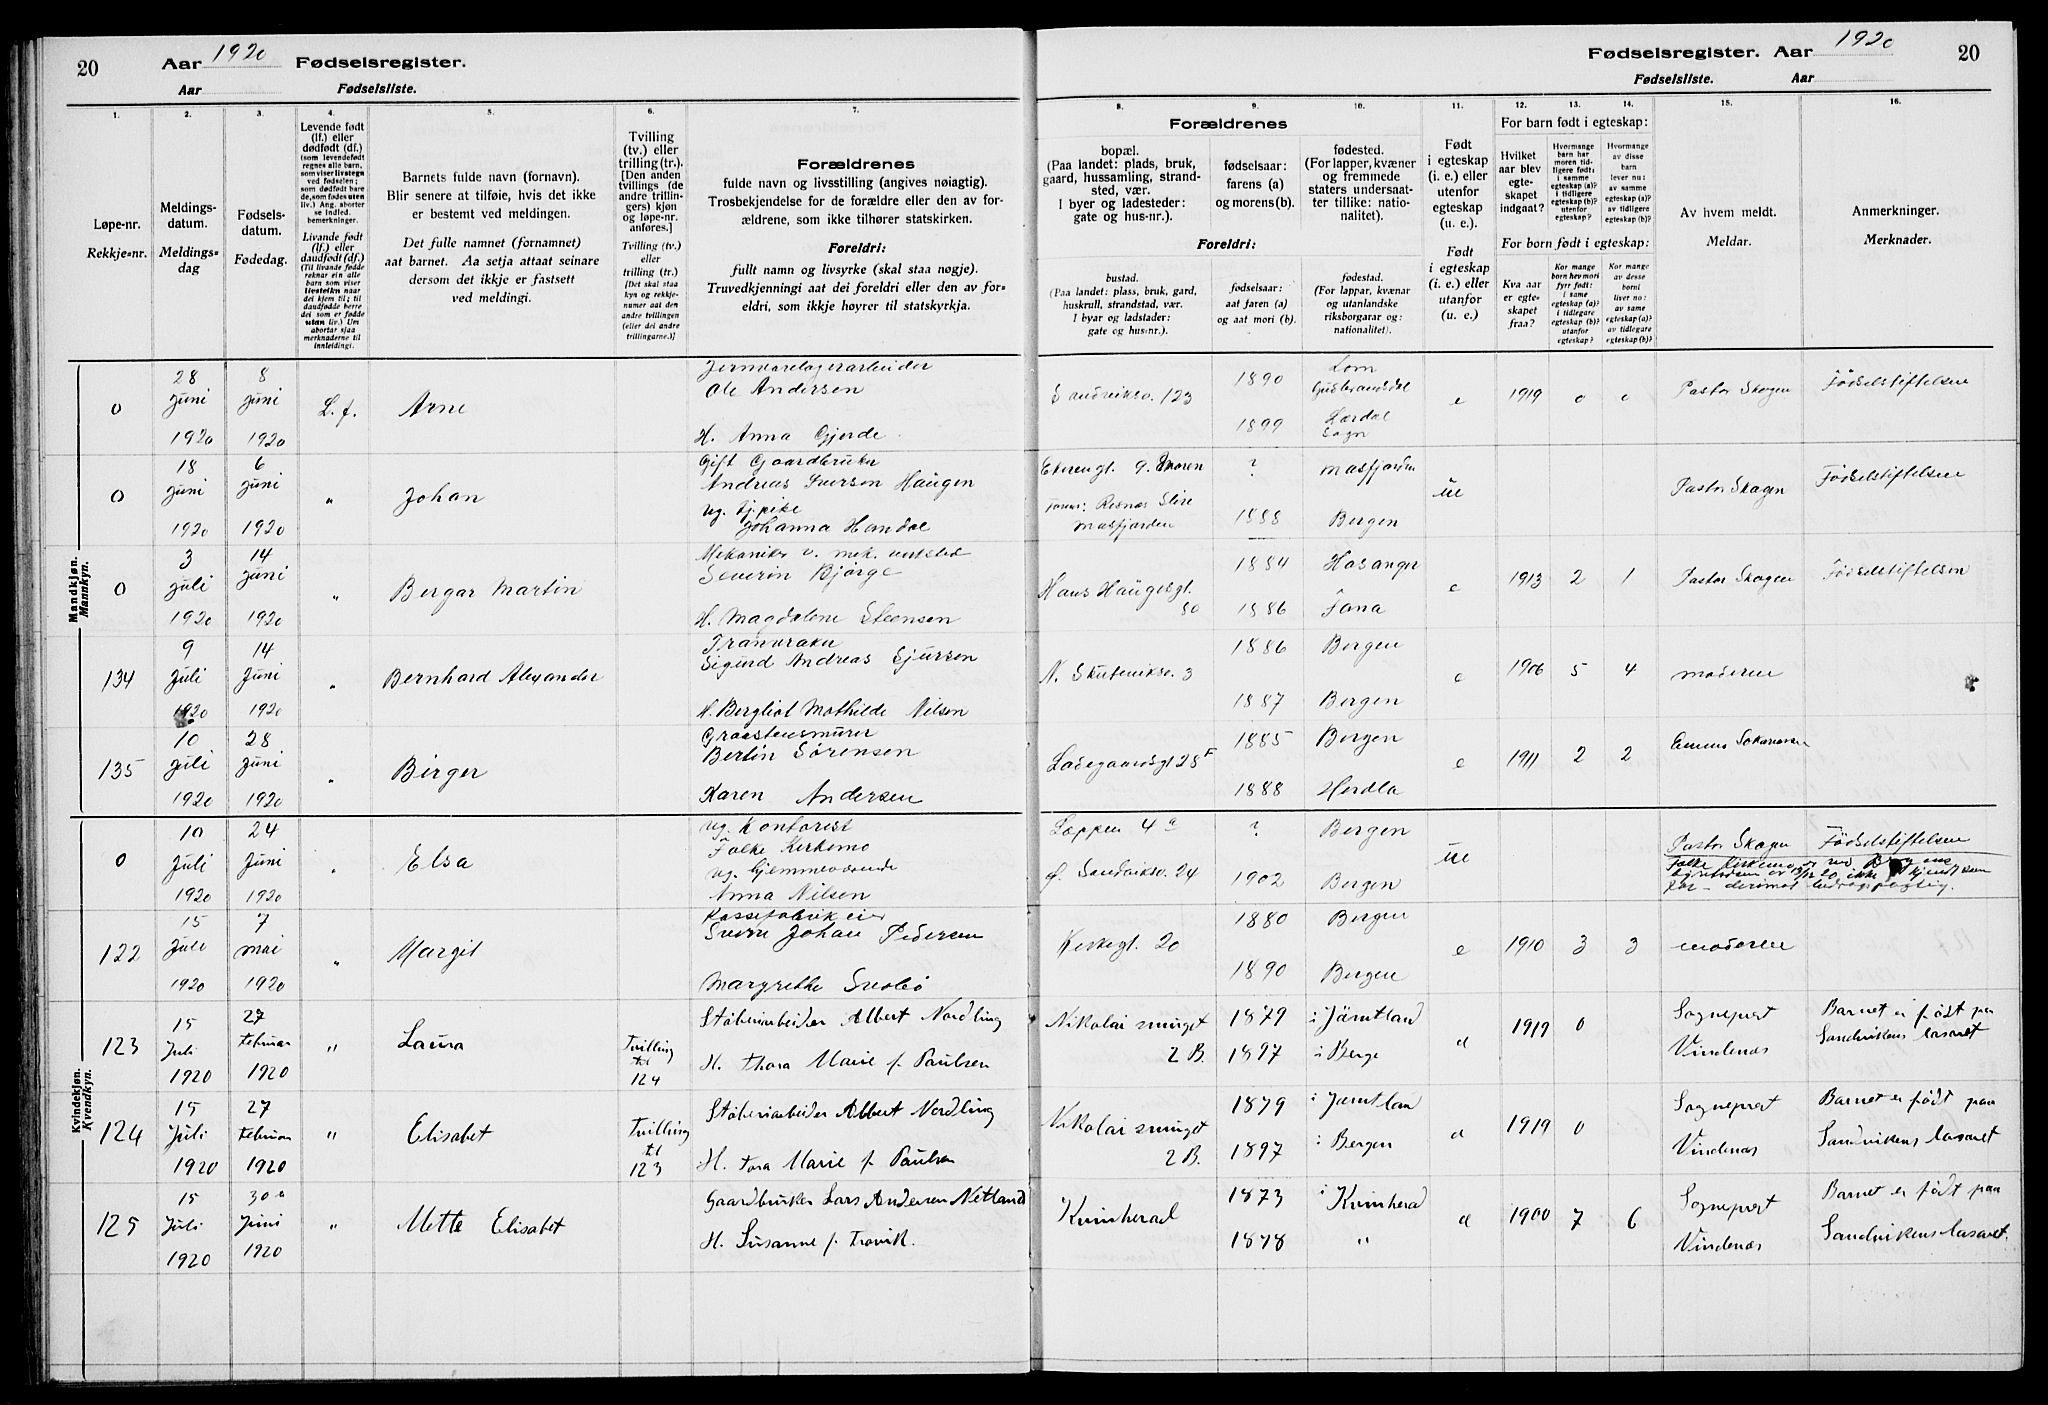 20
Aar 1920 Fødselsregister.
Aar Fødselsliste.
1920
Fødselsregister. Aar
20
Fødselsliste. Aar
1.
2.
3.
4.
5.
6.
7.
8.
9.
10.
11.
12.
13.
14.
15.
16.
Løpe-nr.
Rekkje-nr.
Meldings-
datum.
Meldings-
dag
Fødsels-
datum.
Fødedag.
Levende født
(lf.) eller
dødfødt (df.)
(som levendefødt
regnes alle barn,
som viser livstegn
ved fødselen;
som dødfødt bare
de, som fødes uten
liv.) Ang. aborter
se indled.
bemerkninger.
Livande født
(lf.) eller
daudfødt (df.)
(Til livande fødde
reknar ein alle
barn som viser
livsteikn naar
dei kjem til; til
daudfødde berre
dei som er fødde
utan liv.) Um
abortar sjaa
merknaderne til
innleidingi.
Barnets fulde navn (fornavn).
Blir senere at tilføie, hvis det ikke
er bestemt ved meldingen.
Det fulle namnet (fornamnet)
aat barnet. Aa setja attaat seinare
dersom det ikkje er fastsett
ved meldingi.
Tvilling
(tv.) eller
trilling (tr.).
[Den anden
tvillings (de
andre trillin-
gers) kjøn
og løpe-nr.
anføres.]
Tvilling (tv.)
eller
trilling (tr.)
[Det skal staa
kyn og rekkje-
numer aat den
andre tvillingen
(eller dei andre
trillingarne.)]
Forældrenes
fulde navn og livsstilling (angives nøiagtig).
Trosbekjendelse for de forældre eller den av for-
ældrene, som ikke tilhører statskirken.
Foreldri:
fullt namn og livsyrke (skal staa nøgje).
Truvedkjenningi aat dei foreldri eller den av for-
eldri, som ikkje høyrer til statskyrkja.
Forældrenes
bopæl.
(Paa landet: plads, bruk,
gaard, hussamling, strand-
sted, vær.
I byer og ladesteder:
gate og hus-nr.).
fødselsaar:
farens (a)
og morens (b).
fødested.
(For lapper, kvæner
og fremmede
staters undersaat-
ter tillike: natio-
nalitet).
Foreldri:
bustad.
(Paa landet: plass, bruk, gard,
huskrull, strandstad, vær.
I byar og ladstader:
gate og hus-nr.).
fødselsaar:
aat faren (a)
og aat mori (b).
fødestad.
(For lappar, kvænar
og utanlandske
riksborgarar og:
nationalitet).
Født
i egteskap
(i. e.) eller
utenfor
egteskap
(u. e.).
Født
i egteskap
(i. e.) eller
utanfor
(u. e.).
For barn født i egteskap:
Hvilket
aar blev
egte-
skapet
indgaat?
Hvormange
barn har
moren tid-
ligere født:
i samme
egteskap (a)?
i tidligere
egteskap (b)?
utenfor
egteskap?
Hvormange
av disse
barn
lever nu:
av samme
egteskap (a)?
av tidligere
egteskap (b)?
For born født i egteskap:
Kva aar
er egte-
skapet
fraa?
Kor mange
born hev mori
fyrr født:
i same
egteskap (a)?
i tidlegare
egteskap (b)?
utanfor
egteskap?
Kor mange
av desse
borni
liver no:
av same
egteskap (a)?
av tidlegare
egteskap (b)?
Av hvem meldt.
Meldar.
Anmerkninger.
Merknader.
Mandkjøn.
Mannkyn.
0
28
juni
1920
8
juni
1920
L. f.
Arne
Jernvarelagerarbeider
Ole Andersen
H. Anna Gjerde
Sandviksv. 123
1890
1899
Lom
Gudbrandsdal
Lærdal
Sogn
e
1919
0
0
Pastor Skagen
Fødselstiftelsen
0
18
juni
1920
6
juni
1920
"
Johan
Gift Gaardbruker
Andreas Iversen Haugen
ug. pike
Johanna Handal
?
1888
Masfjorden
Bergen
Masfjorden
ue
Pastor Skagen
Fødselstiftelsen
0
3
juli
1920
14
juni
1920
"
Bergar Martin
Mekaniker v. mek. verksted
Severin Bjørge
H. Magdalene Steensen
Hans Haugesgt.
80
1884
1886
Hosanger
Fana
e
1913
2
1
Pastor Skagen
Fødselstiftelsen
134
9
juli
1920
14
juni
1920
"
Bernhard Alexander
Sigurd Andreas Sjursen
H. Bergliot Mathilde Nilsen
N. Skuteviksv. 3
1886
1887
Bergen
Bergen
e
1906
5
4
moderen
135
10
juli
1920
28
juni
1920
"
Birger
Graastensmurer
Bertin Sørensen
Karen Andersen
Ladegaardsgt 28 F
1885
1888
Bergen
Herdla
e
1911
2
2
Kvindekjøn.
Kvendkyn.
0
10
Juli
1920
24
Juni
1920
"
Elsa
ug. Kontorist
Falke Kirkemo
ug. hjemmeværende
Anna Nilsen
Loppen 4 a
Ø. Sandviksv. 24
?
1902
Bergen
Bergen
ue
Pastor Skagen
Fødselstiftelsen
122
15
Juli
1920
7
mai
1920
"
Margit
Kassefabrikeier
Sverre Johan Pedersen
Margrethe Svebø
Kirkegt. 20
1880
1890
Bergen
Bergen
e
1910
3
3
moderen
123
15
Juli
1920
27
Februar
1920
"
Laura
Tvilling
til
124
Støberiarbeider Albert Nordling
H. Thora Marie f. Paulsen
Nikolai smuget
2 B.
1879
1897
i Jämtland
i Berge
1919
0
Sogneprest
Vindenæs
Barnet er født paa
Sandvikens lasaret
124
15
Juli
1920
27
Februar
1920
"
Elisabet
Tvilling
til
123
Støberiarbeider Albert Nordling
H. Tora Marie f. Paulsen
Nikolai smuget
2 B.
1879
1897
i Jämtlan
i Bergen
1919
0
Sogneprest
Vindenæs
Barnet er født paa
Sandvikens lasaret
125
15
Juli
1920
30
Juni
1920
"
Mette Elisabet
Gaardbruker Lars Andersen Netland
H. Susanne f. Travik.
Kvinherad
1873
1878
i Kvinherad
"
1900
7
6
Sogneprest
Vindenæs
Barnet er født paa
Sandvikens lasaret.